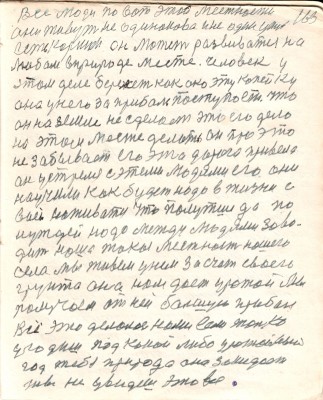 Все люди по всей этой местности
они живут не одинакова и не один
есть корыни он может развиватися на
любом в природе месте. человек у
этом деле бережет как око эту копейку
она у него за прибам поступости что
он на земле не сделает это его дело
на этом месте делоть он про это
не забывает его это дорога привела
он устроил с этеми людями его они
научили как будет надо в жизни с
ваей наживати что полутше да по
нуждей надо между людями заво-
дит наша такая местность нашего
села мы живем у нем за счет своего
грунта она нам дает урожай мы
получаем от ней большую прибал
Все это делоное нами сам только
угодиш под какой либо урожайный
год тебя природа она завидает
ты не увидеш этово.